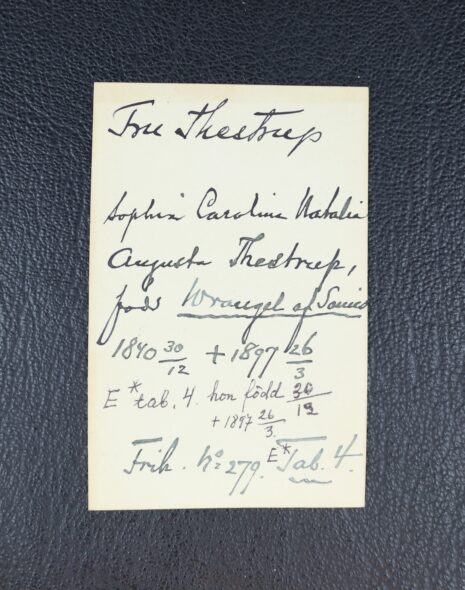 Fru Thestrup
Sophia Carolina Natalia
Augusta Thestrup,
född Wrangel af Sauss
1840 30/12 + 1897 26/3
E* tab. 4. hon född 30/12
+ 1897 26/3.
Frih. No 279. E* Tab. 4.